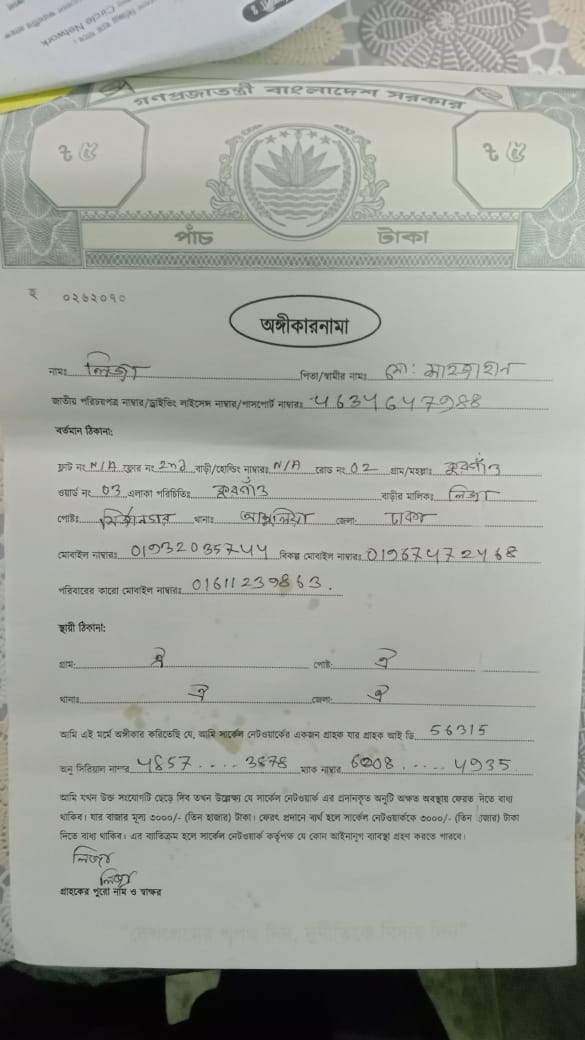 Circle Network
গণপ্রজাতন্ত্রী বাংলাদেশ সরকার
৳ ৫ ৳ ৫
পাঁচ টাকা
০২৬২০৭০
অঙ্গীকারনামা
নামঃ লিজা পিতা/স্বামীর নামঃ মোঃ
জাতীয় পরিচয়পত্র নাম্বার/ড্রাইভিং লাইসেন্স নাম্বার/পাসপোর্ট নাম্বারঃ 4634647988
বর্তমান ঠিকানা:
ফ্লাট নং N/A ফ্লোর নং 2nd বাড়ী/হোল্ডিং নাম্বারঃ N/A রোড নং 02 গ্রাম/মহল্লাঃ
ওয়ার্ড নং 03 এলাকা পরিচিতিঃ বাড়ীর মালিকঃ লিজা
পোষ্টঃ থানাঃ আশুলিয়া জেলা: ঢাকা
মোবাইল নাম্বারঃ 01932035744 বিকল্প মোবাইল নাম্বারঃ 01967472468
পরিবারের কারো মোবাইল নাম্বারঃ 01611239863.
স্থায়ী ঠিকানা:
গ্রাম: ঐ পোষ্ট: ঐ
থানাঃ ঐ জেলা: ঐ
আমি এই মর্মে অঙ্গীকার করিতেছি যে, আমি সার্কেল নেটওয়ার্কের একজন গ্রাহক যার গ্রাহক আই ডি 56315
অনু সিরিয়াল নাম্বার 4857.... 3678 ম্যাক নাম্বার 6208..... 4935
আমি যখন উক্ত সংযোগটি ছেড়ে দিব তখন উল্লেখ্য যে সার্কেল নেটওয়ার্ক এর প্রদানকৃত অনুটি অক্ষত অবস্থায় ফেরত দিতে বাধ্য
থাকিব। যার বাজার মূল্য ৩০০০/- (তিন হাজার) টাকা। ফেরৎ প্রদানে ব্যর্থ হলে সার্কেল নেটওয়ার্ককে ৩০০০/- (তিন হাজার) টাকা
দিতে বাধ্য থাকিব। এর ব্যতিক্রম হলে সার্কেল নেটওয়ার্ক কর্তৃপক্ষ যে কোন আইনানুগ ব্যবস্থা গ্রহণ করতে পারবে।
লিজা
লিজা
গ্রাহকের পুরো নাম ও স্বাক্ষর